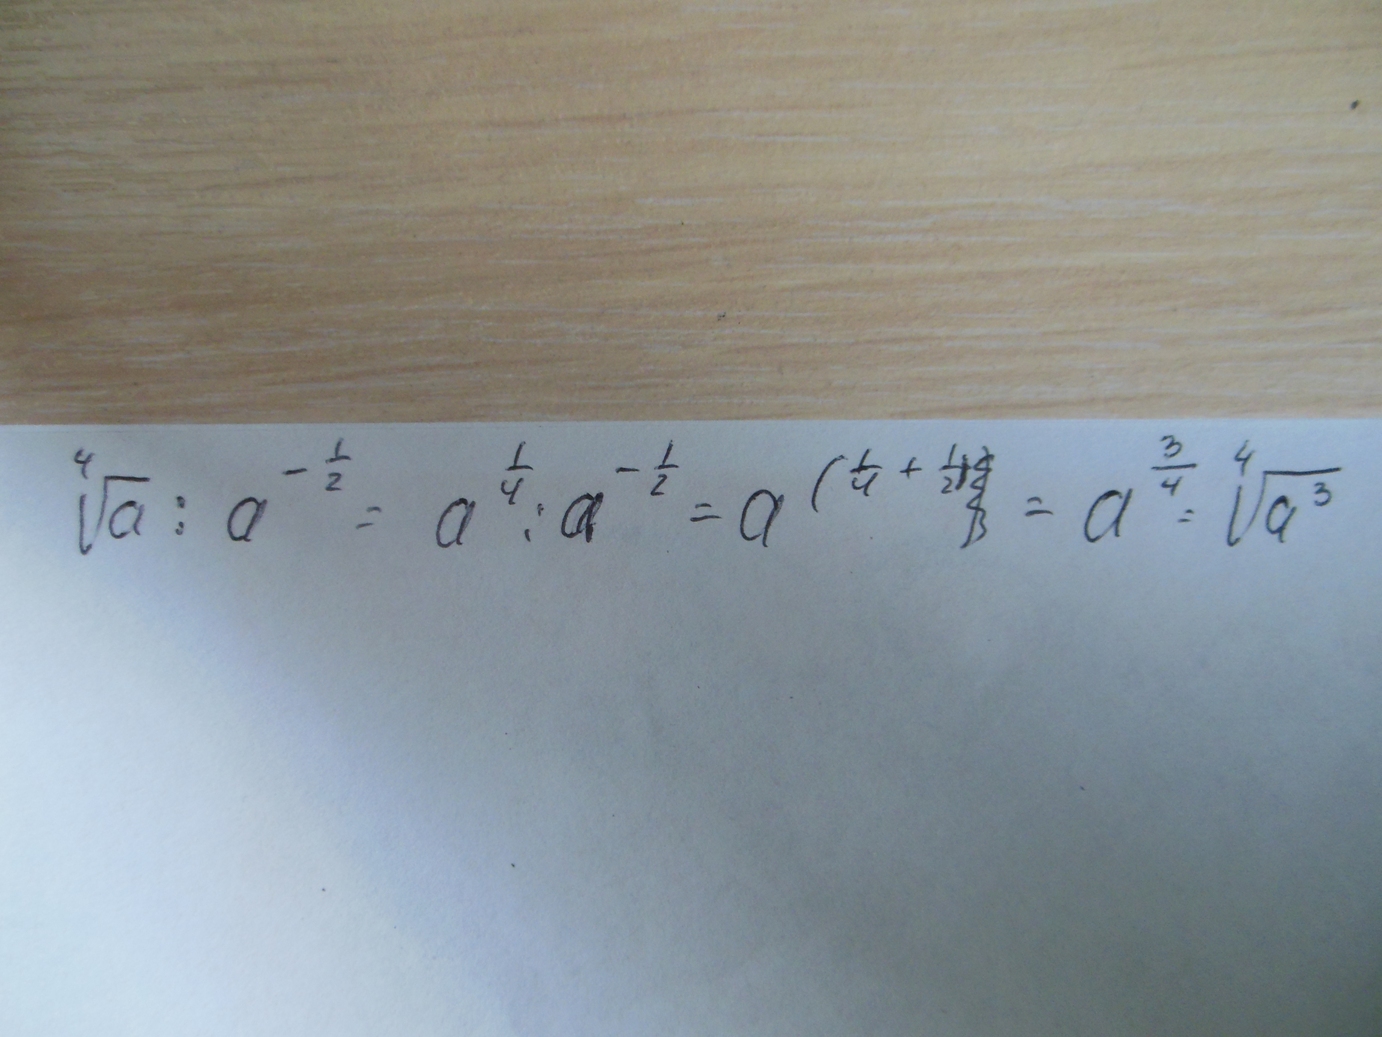 ⁴√a : a^(-1/2) = a^(1/4) : a^(-1/2) = a^(1/4 + 1/2) = a^(3/4) = ⁴√a³